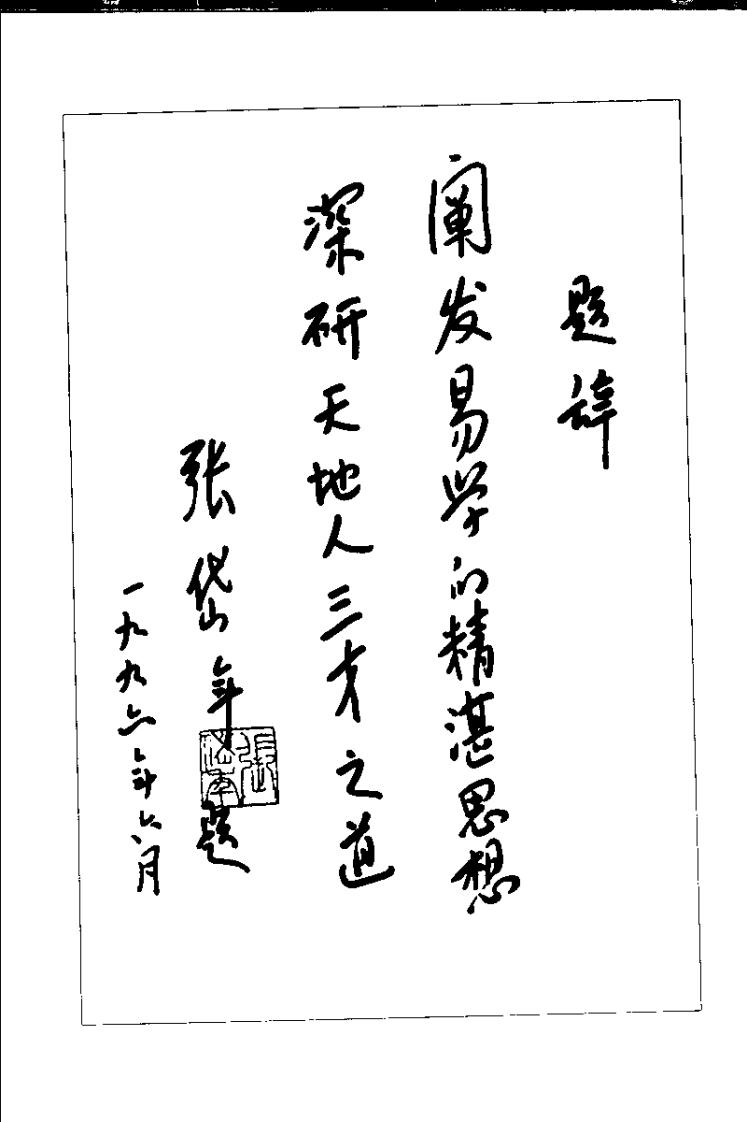 题辞
阐发易学的精湛思想
深研天地人三才之道
张岱年题
一九九六年六月